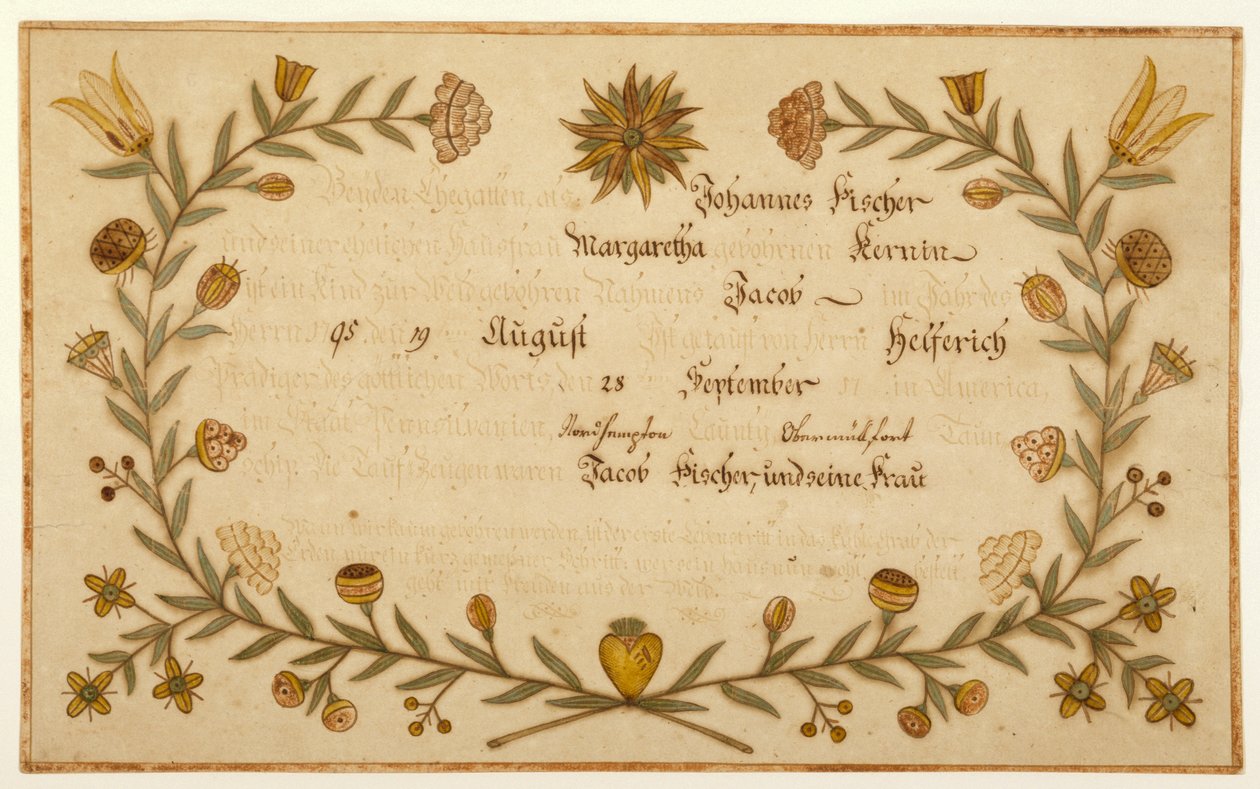 Beyden Ehegatten, als: Johannes Fischer
und seiner ehelichen Hausfrau Margaretha gebohrnen Kernin
ist ein Kind zur Welt gebohren Nahmens Jacob im Jahr des
Herrn 1795. den 19 August Ist getauft von Herrn Helferich
Prädiger des göttlichen Worts, den 28 September 17 in America,
im Staat Pennsilvanien, Nordhempton Caunty, Obermüllfort Taun
schip. Die Tauf Zeugen waren Jacob Fischer, und seine Frau
Wann wir kaum gebohren werden, ist der erste Lebenstritt in das kühle Grab der
Erden, nur ein kurz gemeßner Schritt: wer sein Haus nun wohl bestellt,
geht mit Freuden aus der Welt.